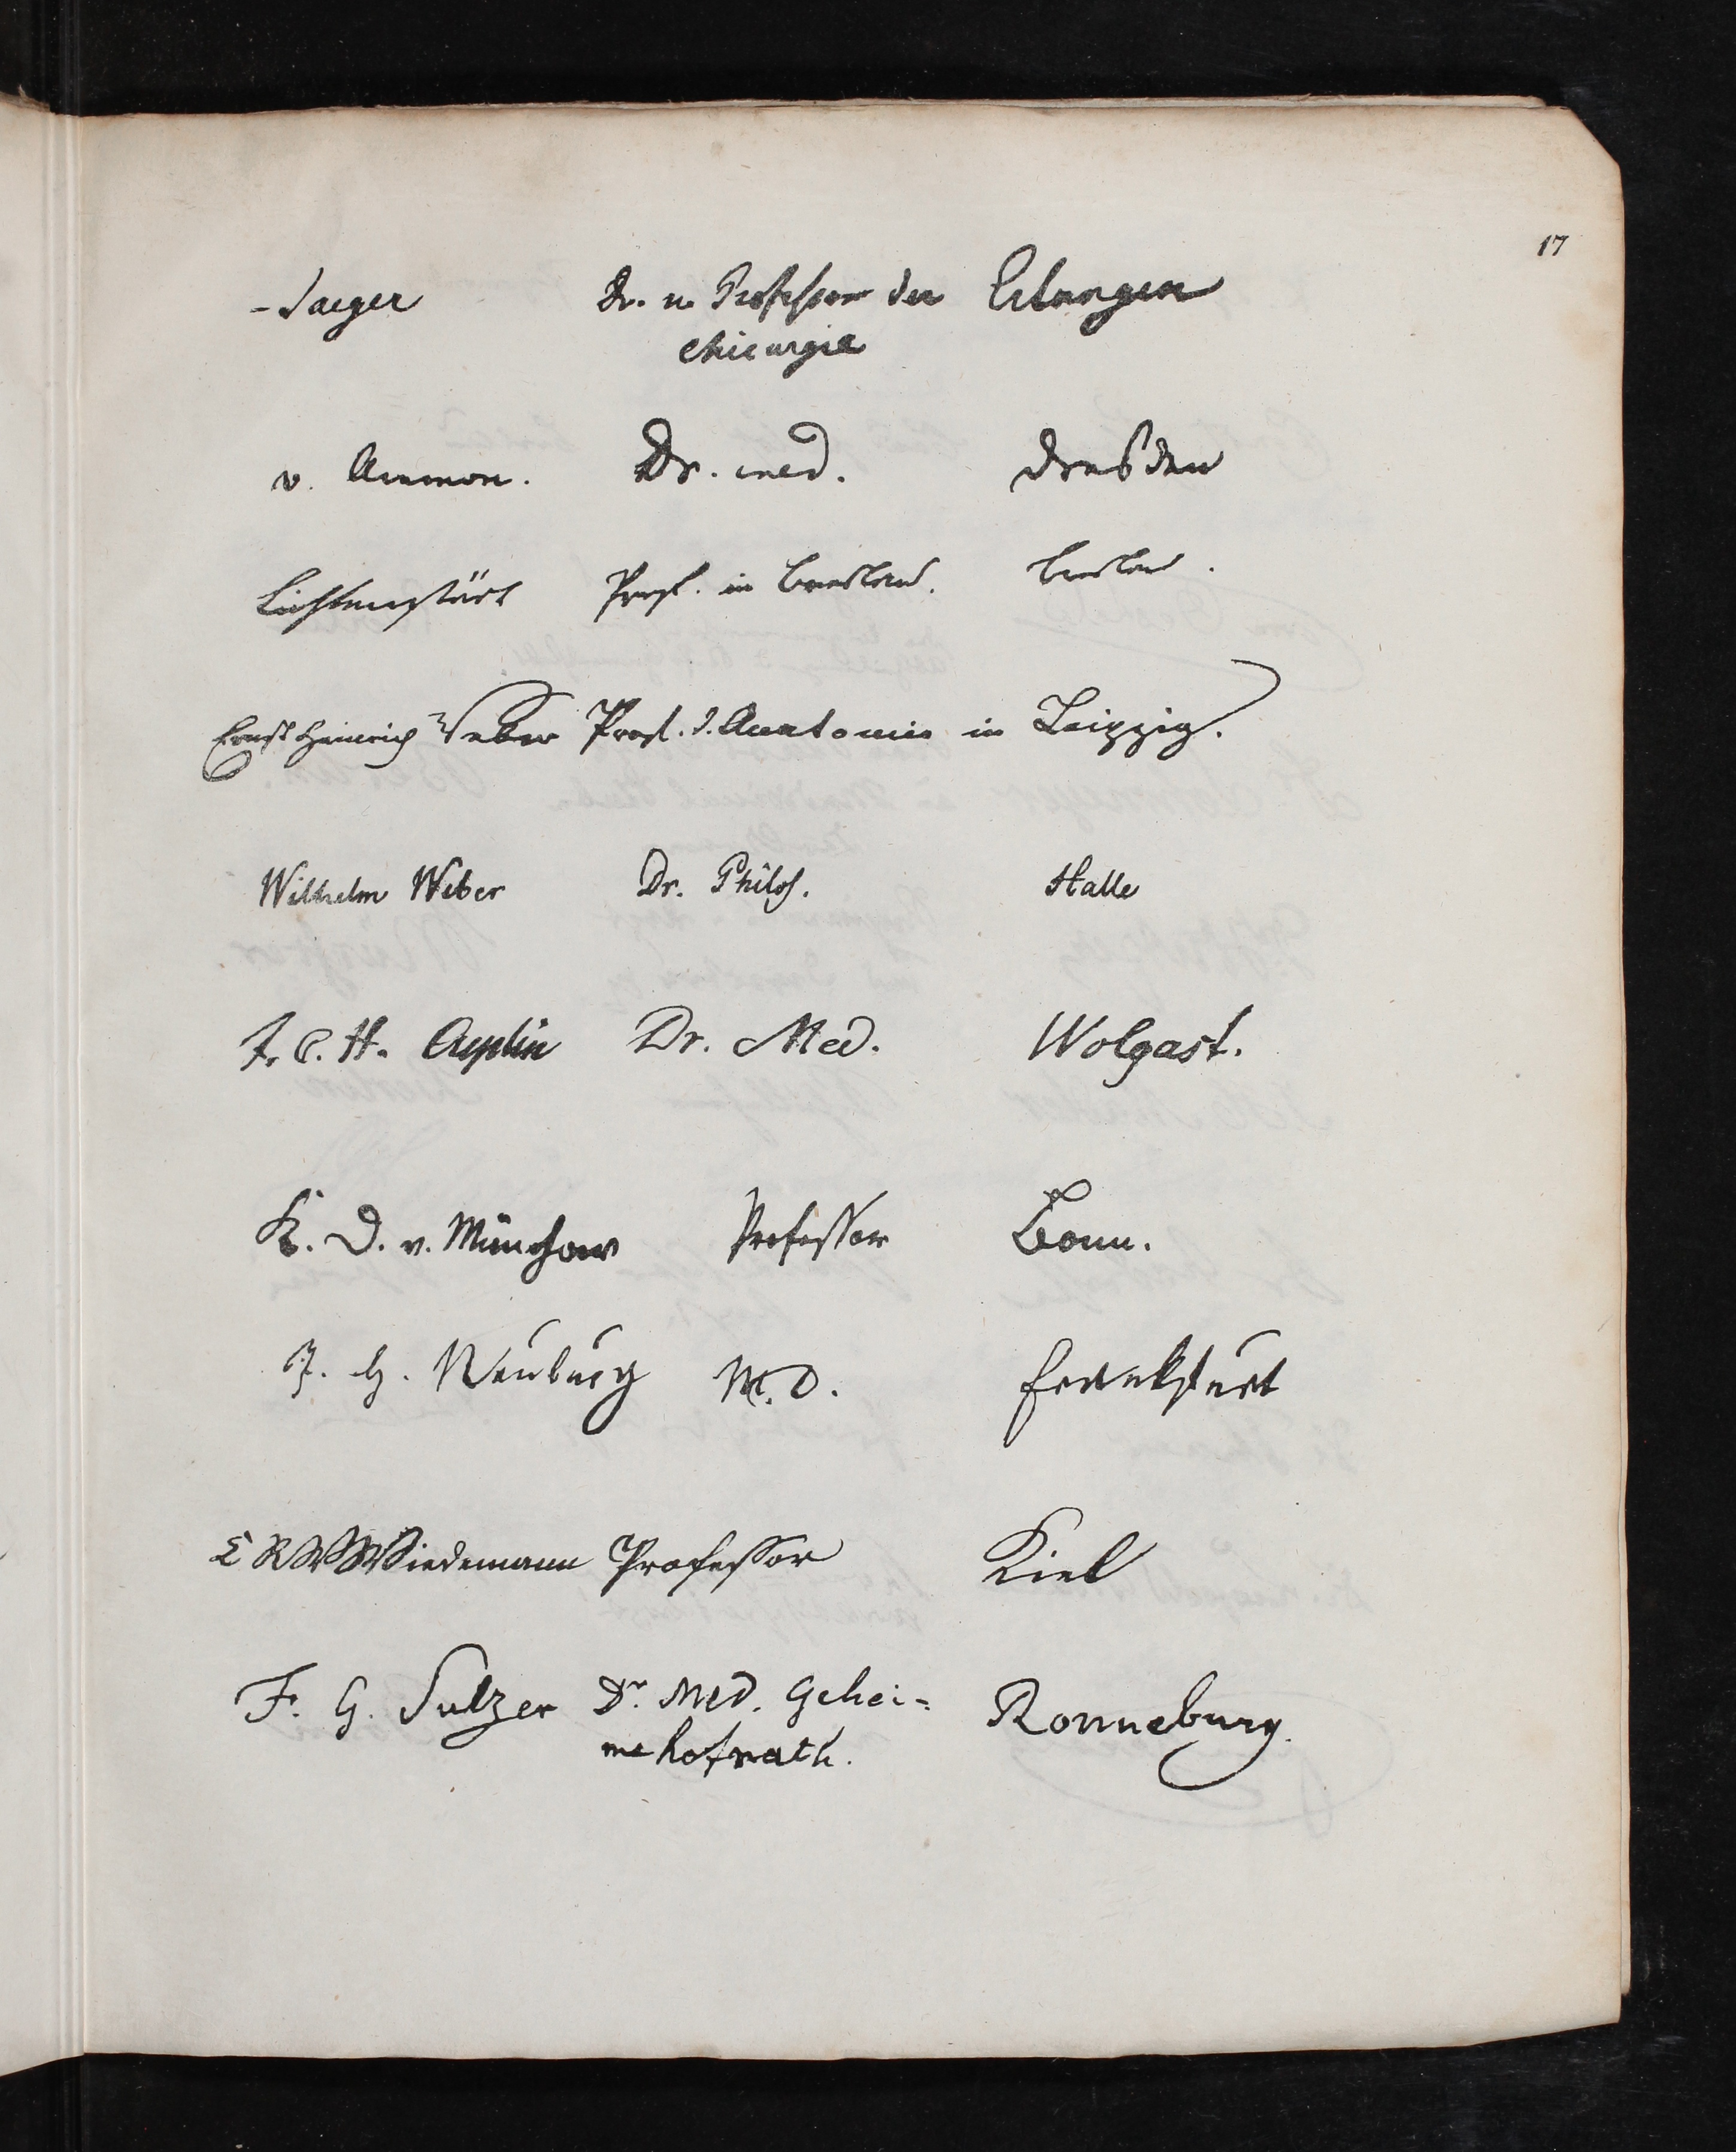 17
- Jaeger Dr. u. Professor der Erlangen
Chirurgie
v. Ammon. Dr. med. Dresden
Lichtenstädt Prof. in Breslau. Breslau.
Ernst Heinrich Weber Prof. d. Anatomie in Leipzig.
Wilhelm Weber Dr. Philos. Halle
F. C. H. Creplin Dr. Med. Wolgast.
K. D. v. Münchow Professor Bonn.
J. G. Neuburg M. D. Frankfurt
C R W Wiedemann Professor Kiel
F. G. Sulzer Dr. Med. Gehei-
me hofrath. Ronneburg.